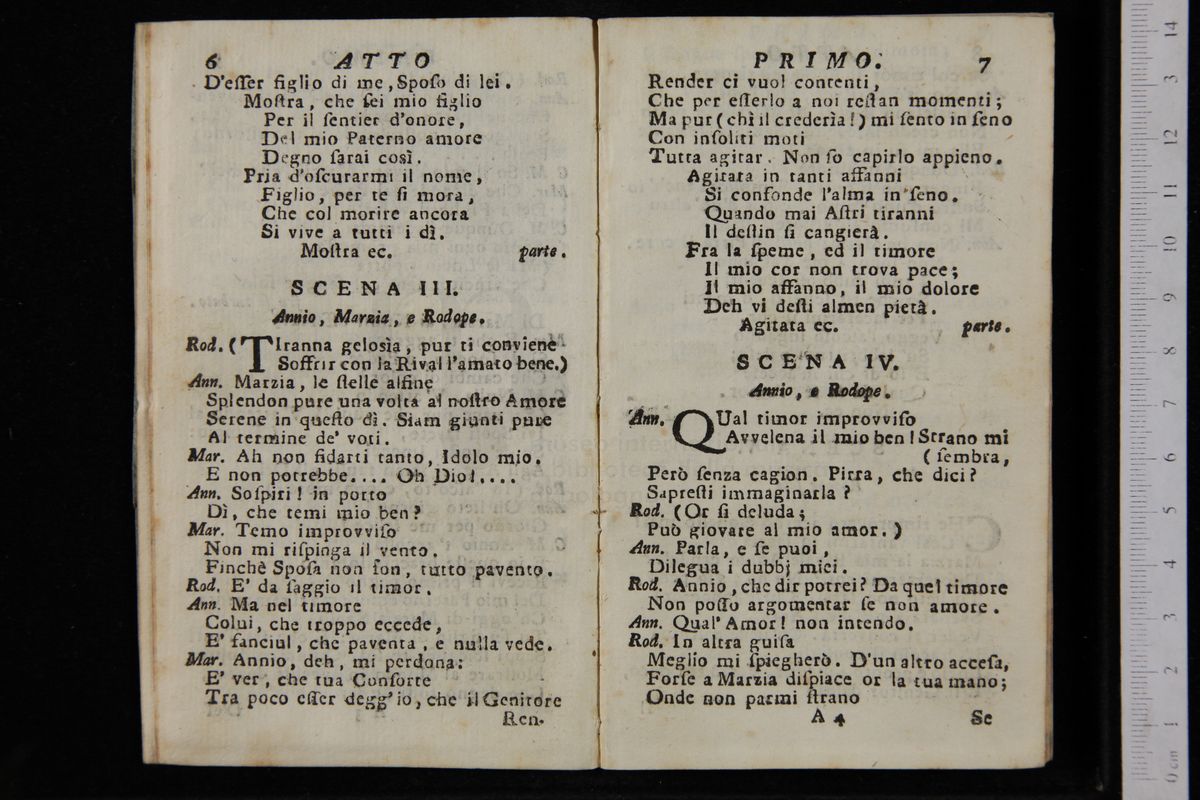 6 ATTO
D'esser figlio di me, Sposo di lei.
Mostra, che sei mio figlio
Per il sentier d'onore,
Del mio Paterno amore
Degno sarai così.
Pria d'oscurarmi il nome,
Figlio, per te si mora,
Che col morire ancora
Si vive a tutti i dì.
Mostra ec. parte.
SCENA III.
Annio, Marzia, e Rodope.
Rod. (TIranna gelosìa, pur ti conviene
Soffrir con la Rival l'amato bene.)
Ann. Marzia, le stelle alfine
Splendon pure una volta al nostro Amore
Serene in questo dì. Siam giunti pure
Al termine de' voti.
Mar. Ah non fidarti tanto, Idolo mio.
E non potrebbe.... Oh Dio!....
Ann. Sospiri! in porto
Dì, che temi mio ben?
Mar. Temo improvviso
Non mi rispinga il vento.
Finchè Sposa non son, tutto pavento.
Rod. E' da saggio il timor.
Ann. Ma nel timore
Colui, che troppo eccede,
E' fanciul, che paventa, e nulla vede.
Mar. Annio, deh, mi perdona:
E' ver, che tua Consorte
Tra poco esser degg'io, che il Genitore
Ren-
PRIMO. 7
Render ci vuol contenti,
Che per esserlo a noi restan momenti;
Ma pur (chi il crederìa!) mi sento in seno
Con insoliti moti
Tutta agitar. Non so capirlo appieno.
Agitata in tanti affanni
Si confonde l'alma in seno.
Quando mai Astri tiranni
Il destin si cangierà.
Fra la speme, ed il timore
Il mio cor non trova pace;
Il mio affanno, il mio dolore
Deh vi desti almen pietà.
Agitata ec. parte.
SCENA IV.
Annio, e Rodope.
Ann. QUal timor improvviso
Avvelena il mio ben! Strano mi
(sembra,
Però senza cagion. Pirra, che dici?
Sapresti immaginarla?
Rod. (Or si deluda;
Può giovare al mio amor.)
Ann. Parla, e se puoi,
Dilegua i dubbj miei.
Rod. Annio, che dir potrei? Da quel timore
Non posso argomentar se non amore.
Ann. Qual' Amor! non intendo.
Rod. In altra guisa
Meglio mi spiegherò. D'un altro accesa,
Forse a Marzia dispiace or la tua mano;
Onde non parmi strano
A 4 Se
0 cm 1 2 3 4 5 6 7 8 9 10 11 12 13 14